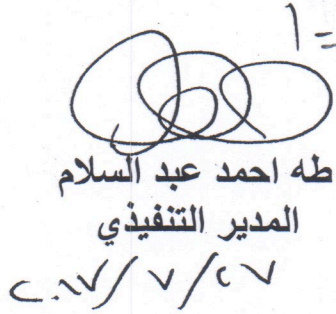 طه احمد عبد السلام
المدير التنفيذي
٢٠١٧/٧/٢٧